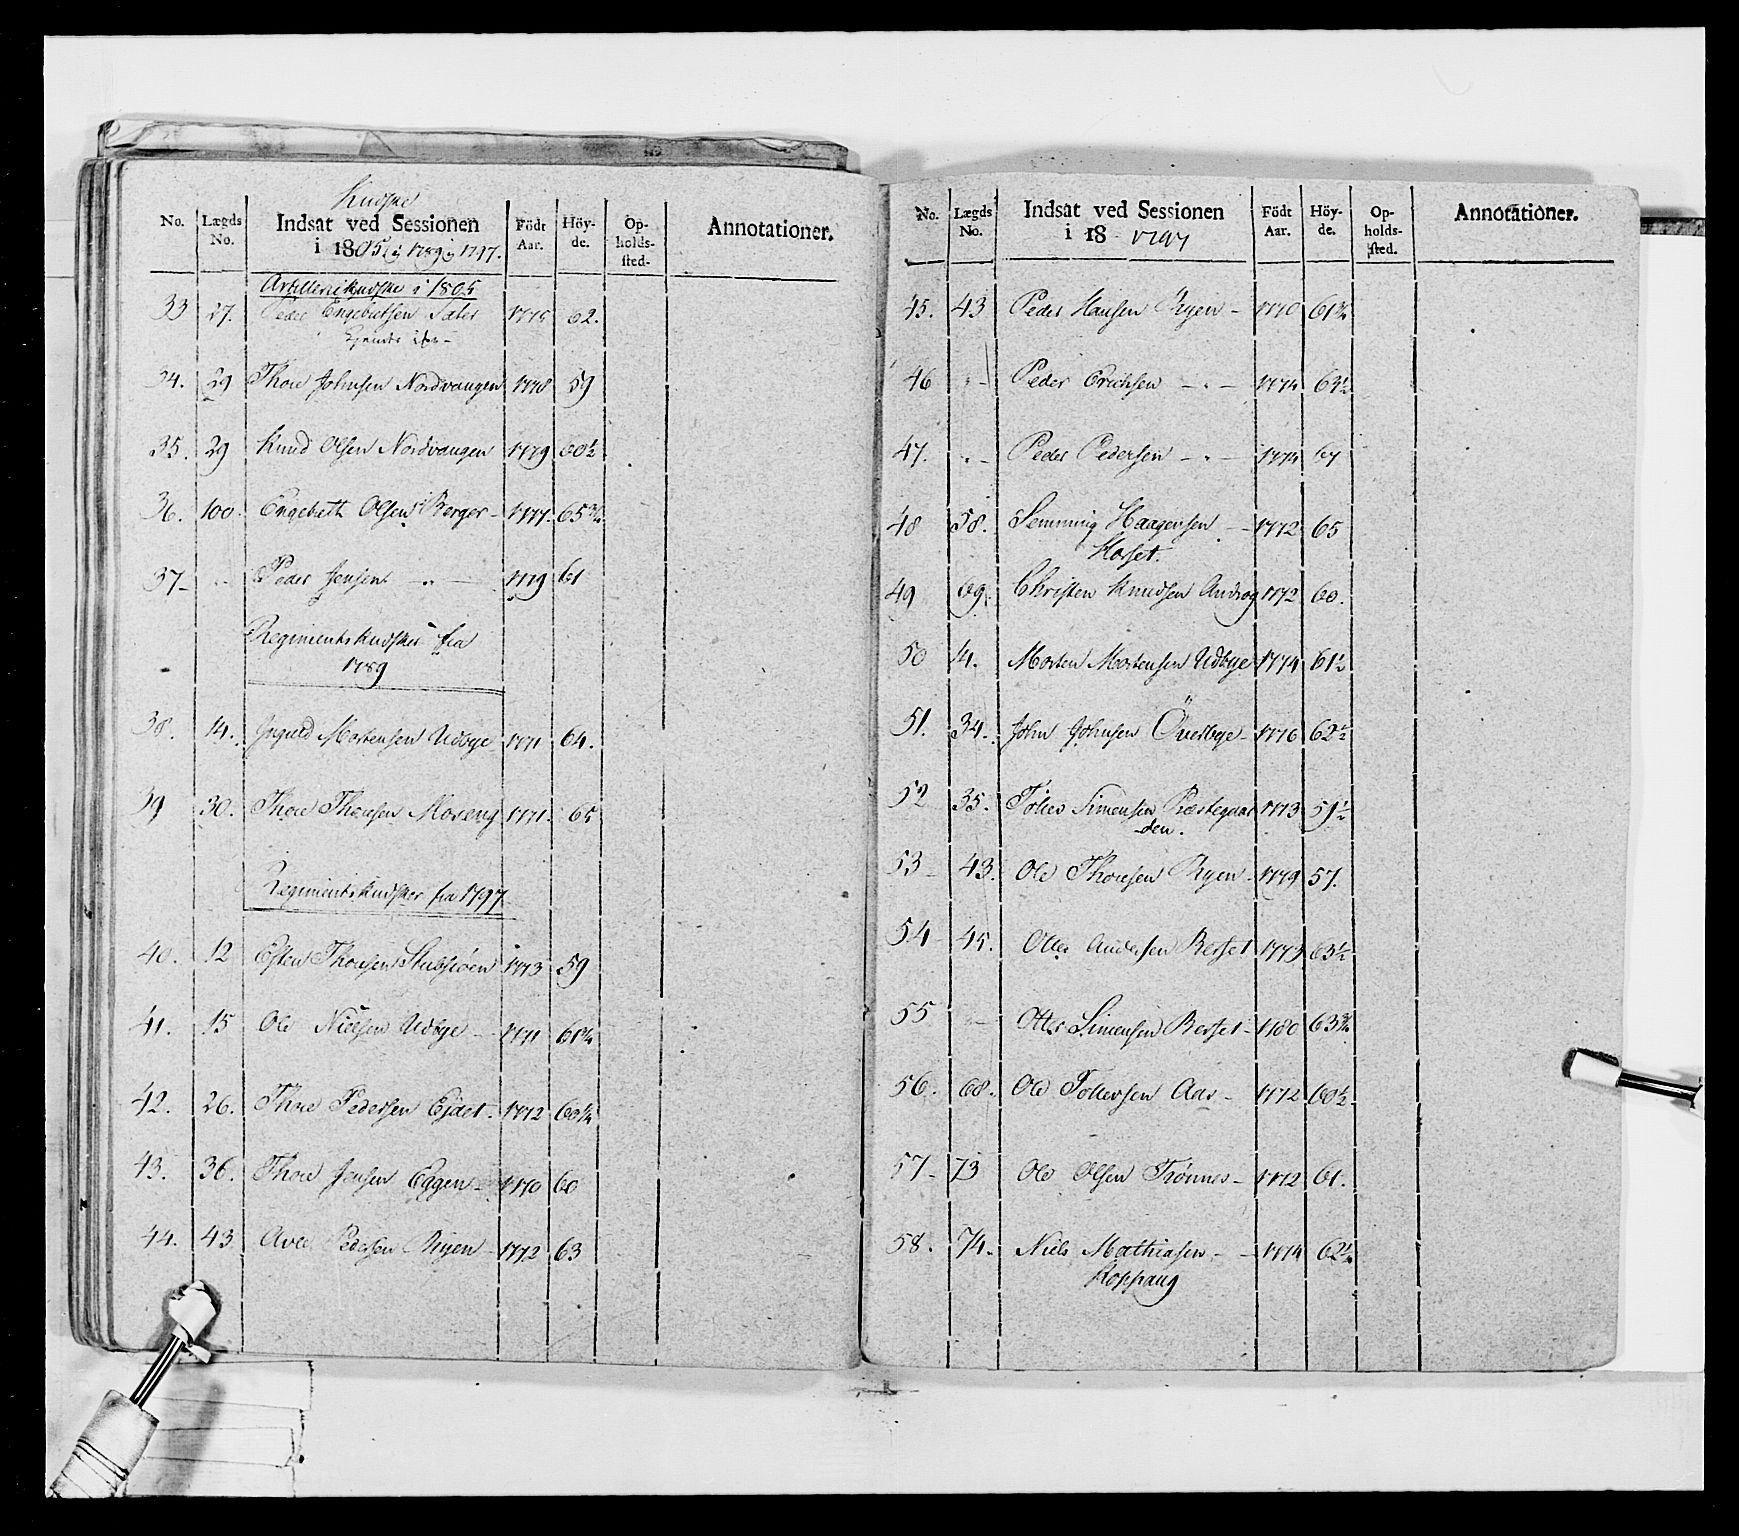 Kudske
No. Lægds No. Indsat ved Sessionen i 1805, 1789, 1797. Födt Aar. Höyde. Opholdssted. Annotationer.
Artillerikudske i 1805
33 27. Peder Engebretsen Sæter 1775 62.
34. 29 Thore Johnsen Nordvangen 1778 59
35. 29 Knud Olsen Nordvangen 1779 60½
36. 100. Engebreth Olsen Berger - 1777. 65¾
37- - Peder Jensen - „ - 1779 61
Regimentskudsker fra
1789
38. 14. Mortensen Udbye 1771 64.
39 30. Thore Thoresen Moreng 1771. 65
Regimentskudsker fra 1797
40. 12 Esten Thoresen Stubsiöen 1773 59
41. 15 Ole Nielsen Udbye - 1771 61¾
42. 26. Thore Pedersen Ejdet - 1772 60¼
43. 36. Thore Jensen Eggen - 1770 60
44. 43 Pedersen Ryen - 1772 63
No. Lægds No. Indsat ved Sessionen i 18 1797 Födt Aar. Höyde. Opholdssted. Annotationer.
45. 43 Peder Hansen Ryen - 1770 61¾
46 „ - Peder Erichsen - „ - 1774 63½
47. „ - Peder Pedersen - „ - 1774 67
48 58. Semming Haagensen - 1772 65
Korset.
49 69. Christen Knudsen Androg 1772 60.
50 14. Morten Mortensen Udbye 1774 61½
51. 34. John Johnsen Överbye - 1776 62½
52 35. Tollef Simensen Præstegaar 1773 51½
den.
53 - 43. Ole Thoresen Ryen - 1779 57.
54 45. Otter Andersen Berset 1773 63½
55 - Otter Simensen Berset - 1780 63¾
56. 68. Ole Tollersen Aas - 1772 60½
57- 73 Ole Olsen Trönnes - 1772 61.
58. 74. Niels Mathiasen - - 1774 62¼
Koppang